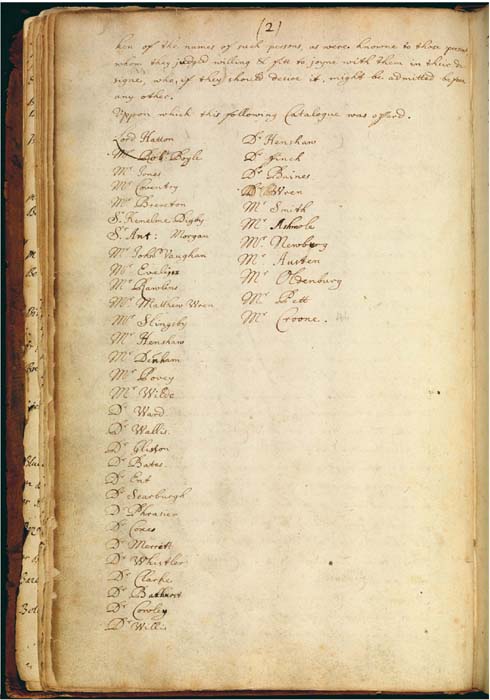 (2)
ken of the names of such persons, as were knowne to those present
whom they judged willing & fitt to joyne with them in their de
signe, who, if they should desire it, might be admitted before
any other.
Uppon which this following Catalogue was offerd.
Lord Hatton
Mr Robt Boyle
Mr Jones
Mr Coventry
Mr Brereton
Sr Kenelme Digby
Sr Ant: Morgan
Mr John Vaughan
Mr Evelin
Mr Rawlins
Mr Matthew Wren
Mr Slingsby
Mr Henshaw
Mr Denham
Mr Povey
Mr Wilde
Dr Ward
Dr Wallis
Dr Glisson
Dr Bates
Dr Ent
Dr Scarburgh
Dr Phrasier
Dr Coxes
Dr Merrett
Dr Whistler
Dr Clarke
Dr Bathurst
Dr Cowley
Dr Willis
Dr Henshaw
Dr finch
Dr Baines
Dr Wren
Mr Smith
Mr Ashmole
Mr Newburg
Mr Austen
Mr Oldenburg
Mr Pett
Mr Croone.